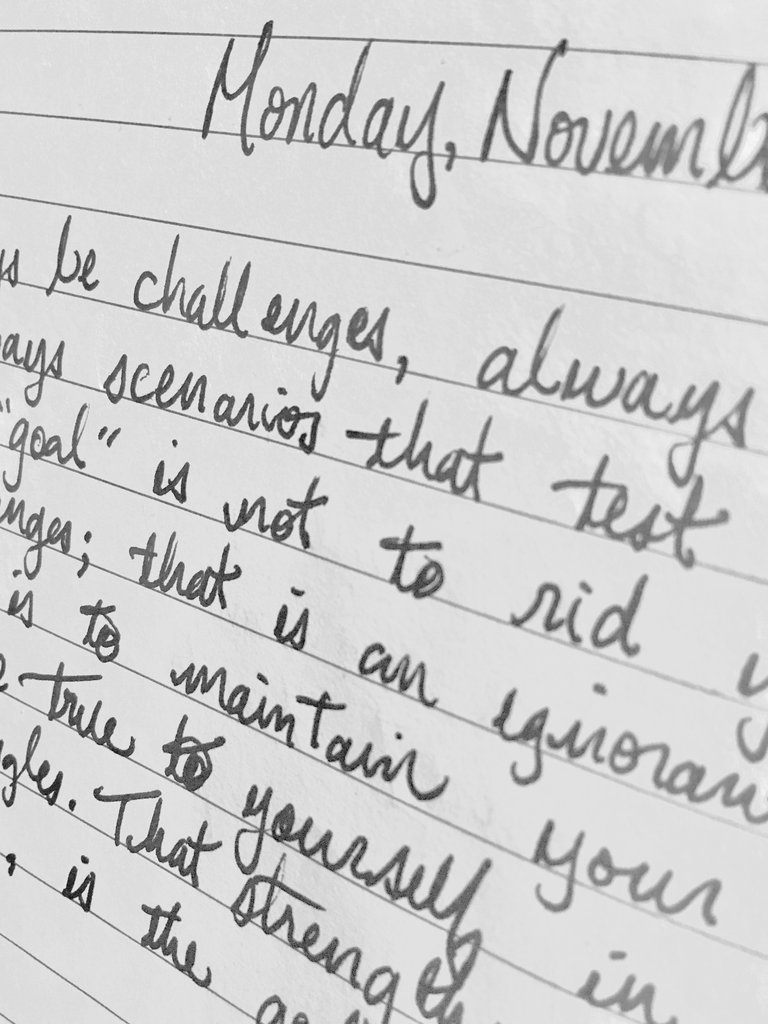 Monday, Novemb
be challenges, always
ays scenarios that test
"goal" is not to rid y
nges; that is an ignoran
is to maintain your
true to yourself in
gles. That strength
, is the